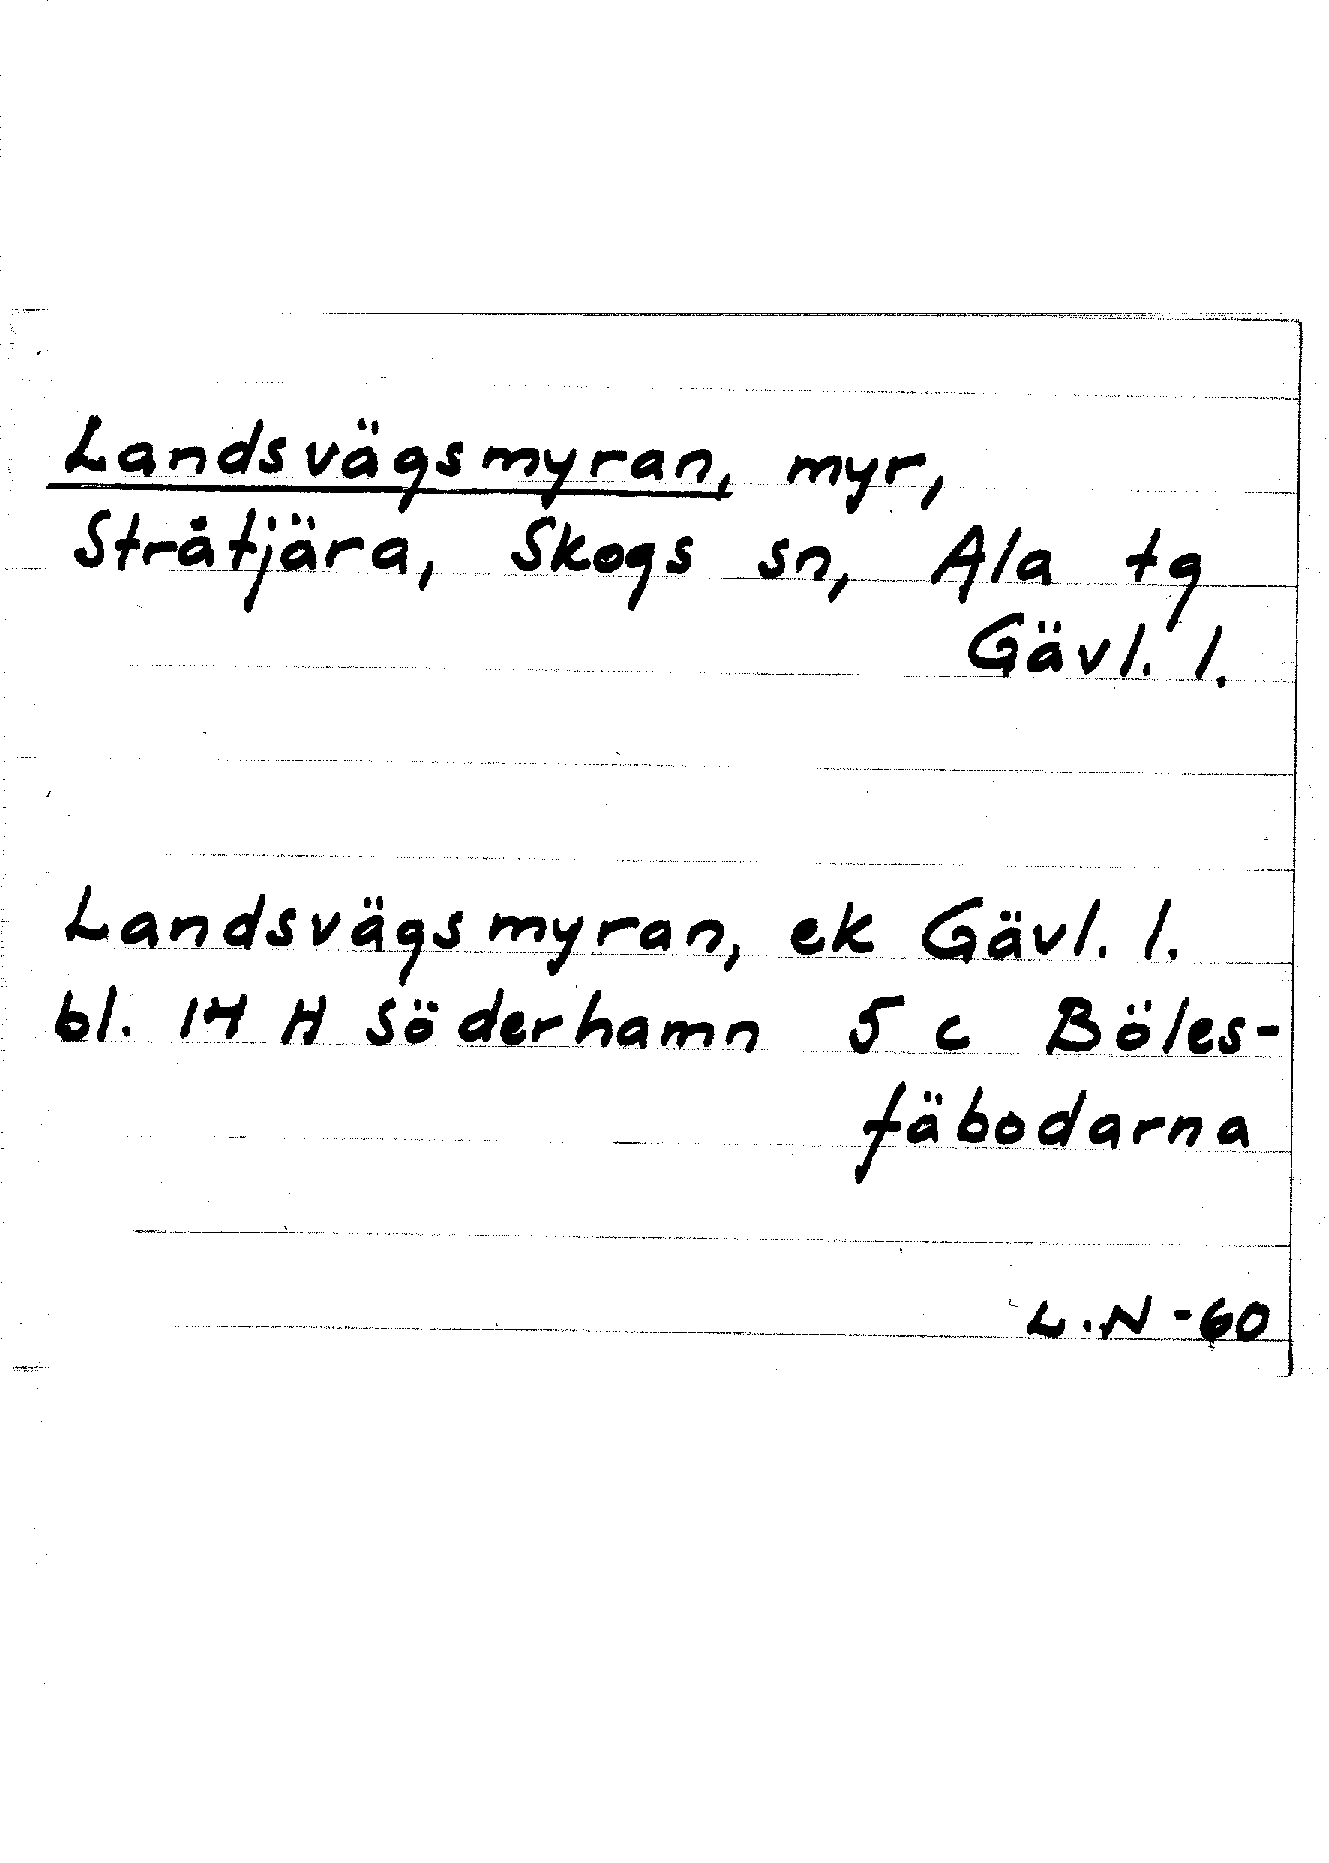 Landsvägsmyran, myr,
Stråtjära, Skogs sn, Ala tg
Gävl. l.
Landsvägsmyran, ek Gävl. l.
bl. 14 H Söderhamn 5 c Böles-
fäbodarna
L.N -60